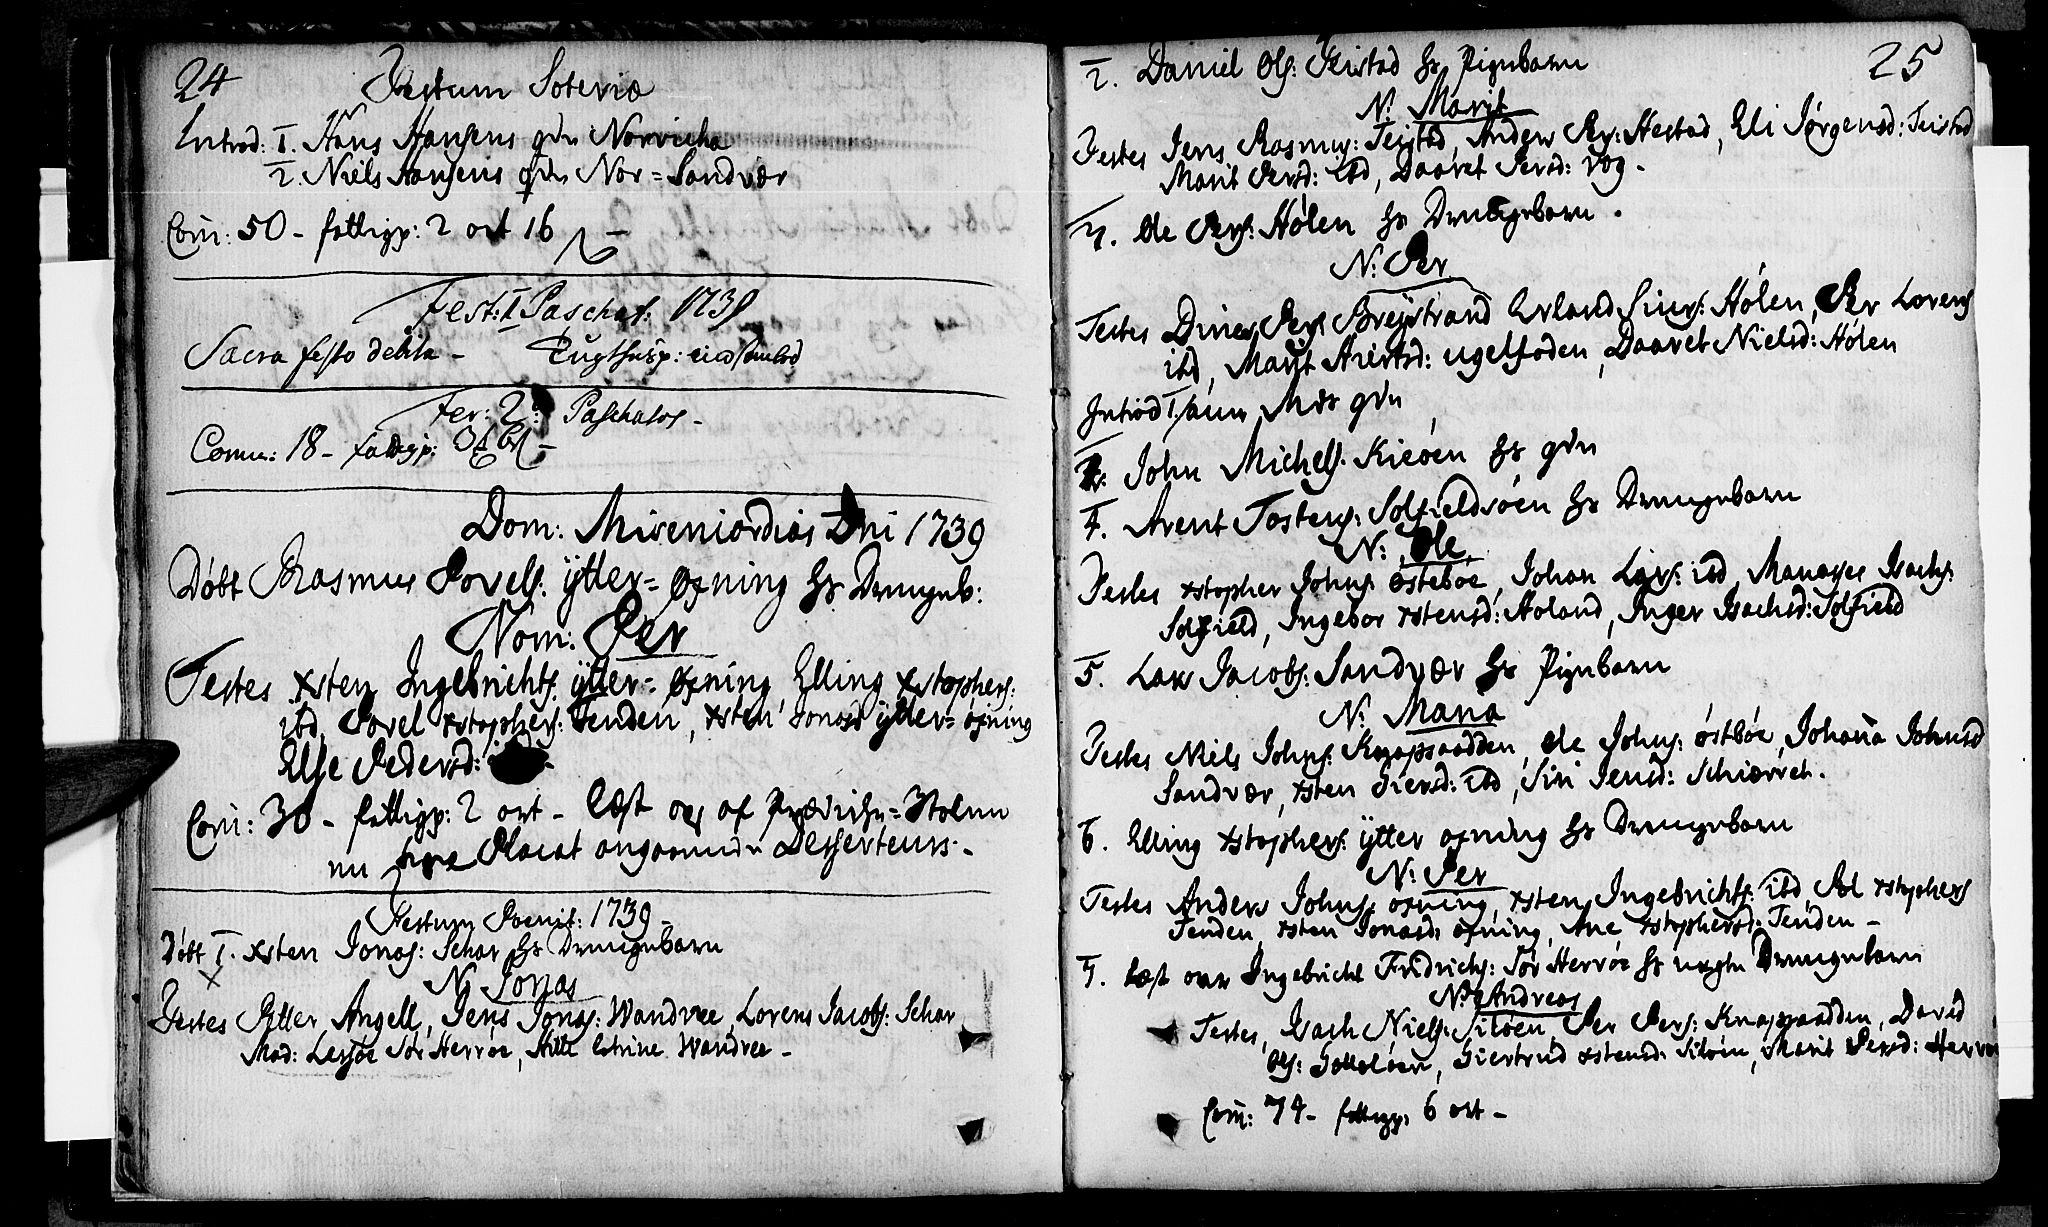 24
Festum Soteriæ
Introd: 1. Hans Hansens qvn Norvicha
2. Niels Hansens qvn Nor=Sandvær
Com: 50 - fattigp: 2 ort 16
Fest: I Paschat: 1739
Sacra festo debita -
Fer: 2 Paschatos -
Comu: 18 - fattigp:
Dom: Misericordias Dni 1739
Døbt Rasmus Povels: ytter=øxning hs Drengeb:
Nom: Per
Testes xsten Ingebrichts: ytter=øxning, Elling xstophers:
ibd, Povel xstophers: Tenden, xsten Jonasd ytter=øxning
Else Pedersd:
Com: 30 - fattigp: 2 ort - Læst og af
nu Placat angaaende Desserteurs. -
Festum Poenit: 1739 -
Døbt 1. xsten Jonas: Schar hs Drengebarn
N: Jonas
Testes Petter Angell, Jens Jonas: Wandvee, Lorens Jacobs: Schar
Mad: Lessøe Sør Herrøe, Wandvee -
25
2. Daniel Ols: Teistad hs Pigebarn
N: Marit
Testes Jens Rasmus: Teistad, Anders Per: Hestad, Eli Jørgensd: Teistad
Marit Persd: ibd, Daaret Persd: Vog -
3. Ole Pers: Hølen hs Drengebarn.
N: Per
Testes Dines Pers Breystrand Erland Siurs: Hølen, Per Lorens
ibd, Marit ugelfoden, Daaret Nielsd: Hølen
Introd 1. qvn
2. John Michels: hs qvn
4. Arent Tostens: Solfieldsøen hs Drengebarn
N: Ole
Testes xstopher Johns: østebøe, Johan Lars: ibd, Manasses Isachs:
Solfield, Ingebor xstensd: Holand, Inger Isachsd: Solfield
5. Lars Jacobs: Sandvær hs Pigebarn
N: Mana
Testes Niels Johns: Knapsadden, Ole Johns: østbøe, Johana Johnsd
Sandvær, xsten ibd, Siri Jensd:
6. Elling xstophers: ytter øxning hs Drengebarn
N: Per
Testes Anders Johns: øxning, xsten Ingebrichts: ibd Pol xstophers
Tenden, xsten Jonasd: øxning, Ane xstophersd: Tenden -
7. Læst over Ingebricht Fridrichs: Sør Herrøe hs Drengebarn
N: Andreas
Testes, Isach Niels: Siløen, Per Pers: Knapsadden, David
Ols: Giertrud xstensd: Siløen, Marit Persd: Herrøe
Com: 74 - fattigp: 6 ort -